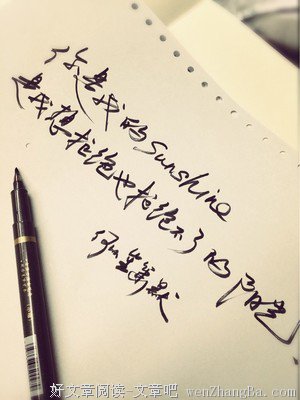 你是我的Sunshine
是我想拒绝也拒绝不了的阳光
何以笙箫默
好文章阅读-文章吧 wenZhangBa.com